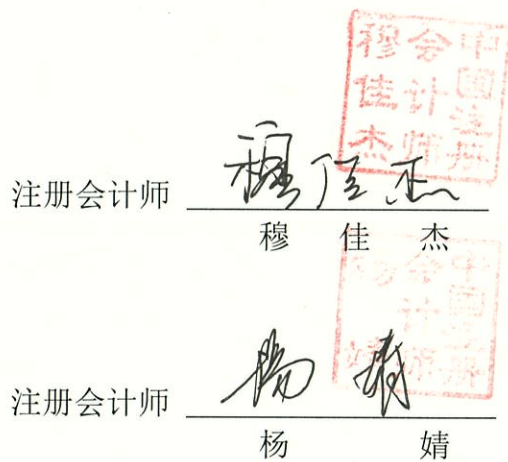 中国注册
会计师
穆佳杰
注册会计师 穆佳杰
穆 佳 杰
中国注册
会计师
杨婧
注册会计师 杨婧
杨 婧